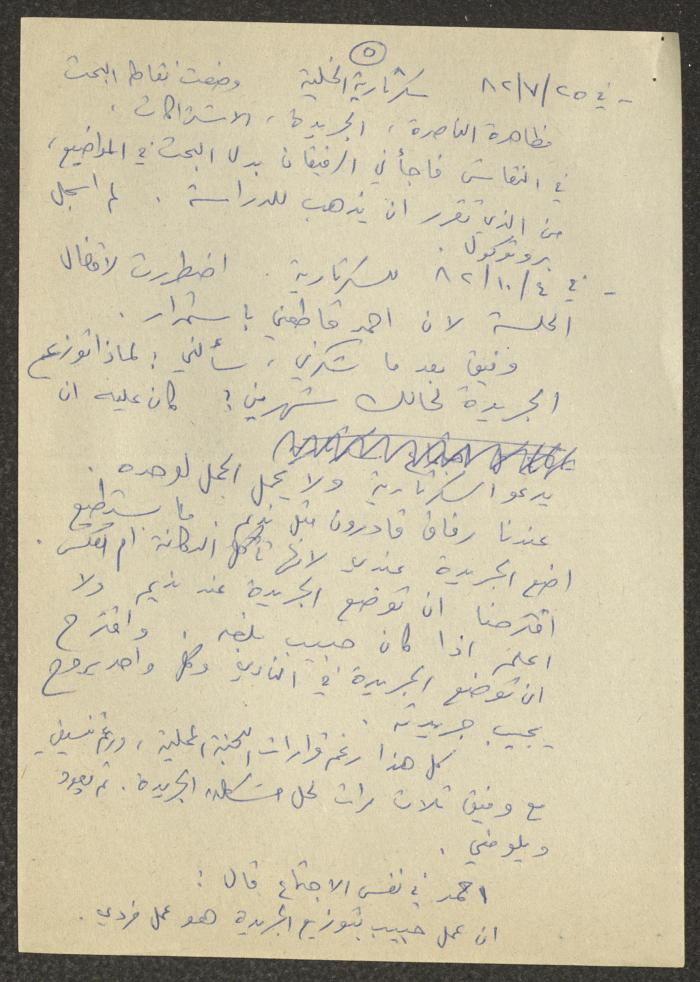 ٥
- في ٨٢/٧/٢٥ سكرتارية الخلية وضعت نقاط البحث
مظاهرة الناصرة، الجريدة، الاشتراكات.
في النقاش فاجأني الرفيقان بدل البحث في المواضيع،
من الذي تقرر ان يذهب للدراسة. لم اسجل
بروتوكول.
- في ٨٢/١٠/٤ للسكرتارية. اضطررت لاقفال
الجلسة لان احمد قاطعني باستمرار.
وفيق بعد ما شكرني، سألني: لماذا توزع
الجريدة لحالك شهرين؟ كان عليه ان
يدعو السكرتارية ولا يحمل الحمل لوحده.
عندنا رفاق قادرون مثل نديم. ما بستطيع
اضع الجريدة عندي لانها الدكانة ام العكس.
اقترحنا ان توضع الجريدة عند نديم ولا
اعلم اذا كان حبيب بلغه. واقترح
ان توضع الجريدة في النادي وكل واحد يروح
يجيب جريدته.
كل هذا رغم قرارات اللجنة المحلية، ورغم تنسيقي
مع وفيق ثلاث مرات لحل مشكلة الجريدة. ثم يعود
ويلومني.
احمد في نفس الاجتماع قال:
ان عمل حبيب بتوزيع الجريدة هو عمل فردي.